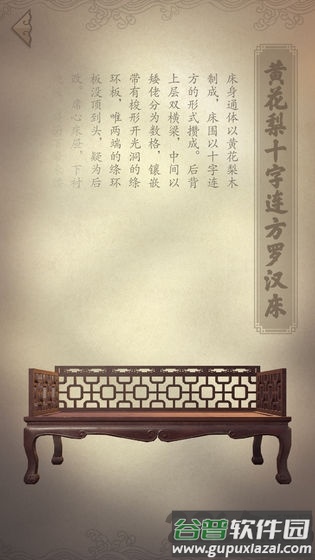 黄花梨十字连方罗汉床
床身通体以黄花梨木
制成，床围以十字连
方的形式攒成。后背
上层双横梁，中间以
矮佬分为数格，镶嵌
带有梭形开光洞的绦
环板，唯两端的绦环
板没顶到头，疑为后
改。席心床屉，下衬
谷普软件园
www.gupuxiazai.com